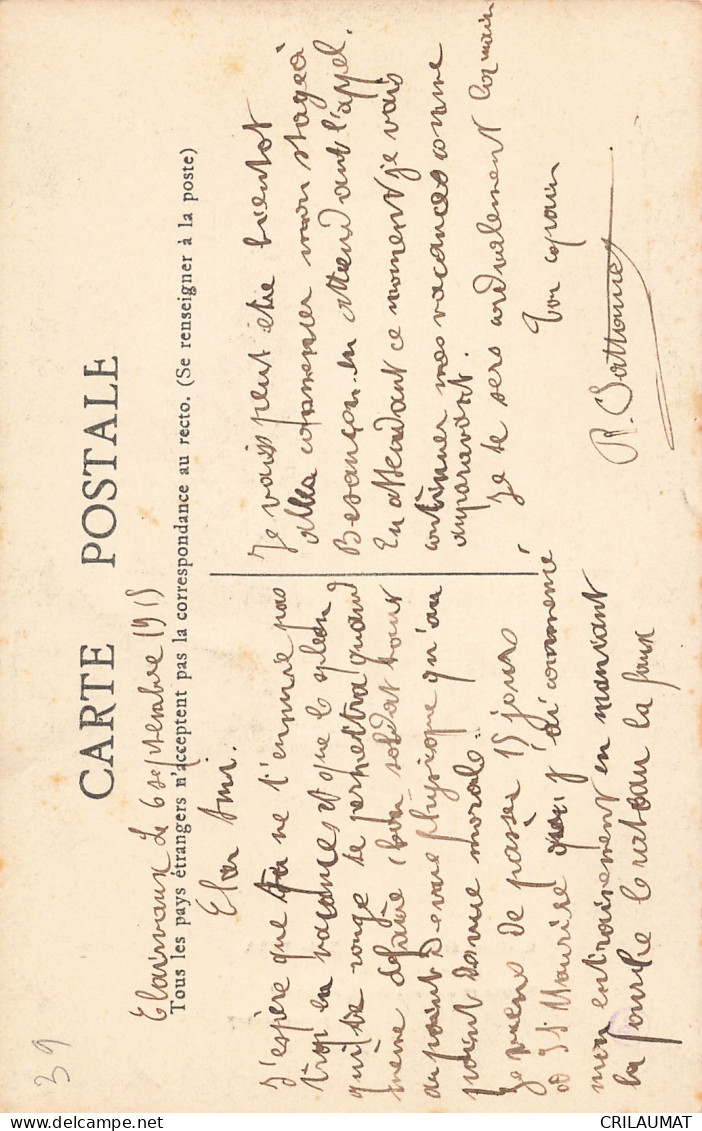 CARTE POSTALE
Tous les pays étrangers n'acceptent pas la correspondance au recto. (Se renseigner à la poste)
Clairvaux le 6 septembre 1915
Cher Ami.
J'espère que tu ne t'ennuie pas
trop en vacances et que le spleen
qui te ronge te permettra quand
même faire bon soldat tant
au point de vue physique qu'au
point de vue morale.
Je viens de passer 15 jours
à St Maurice j'ai commencé
mon entrainement en manœuvrant
la fourche le rateau la faux
Je vais peut être bientot
aller commencer mon stage à
Besançon en attendant l'appel.
En attendant ce moment je vais
continuer mes vacances comme
auparavant.
Je te sers cordialement la main
Ton copain
R.
39
CRILAUMAT